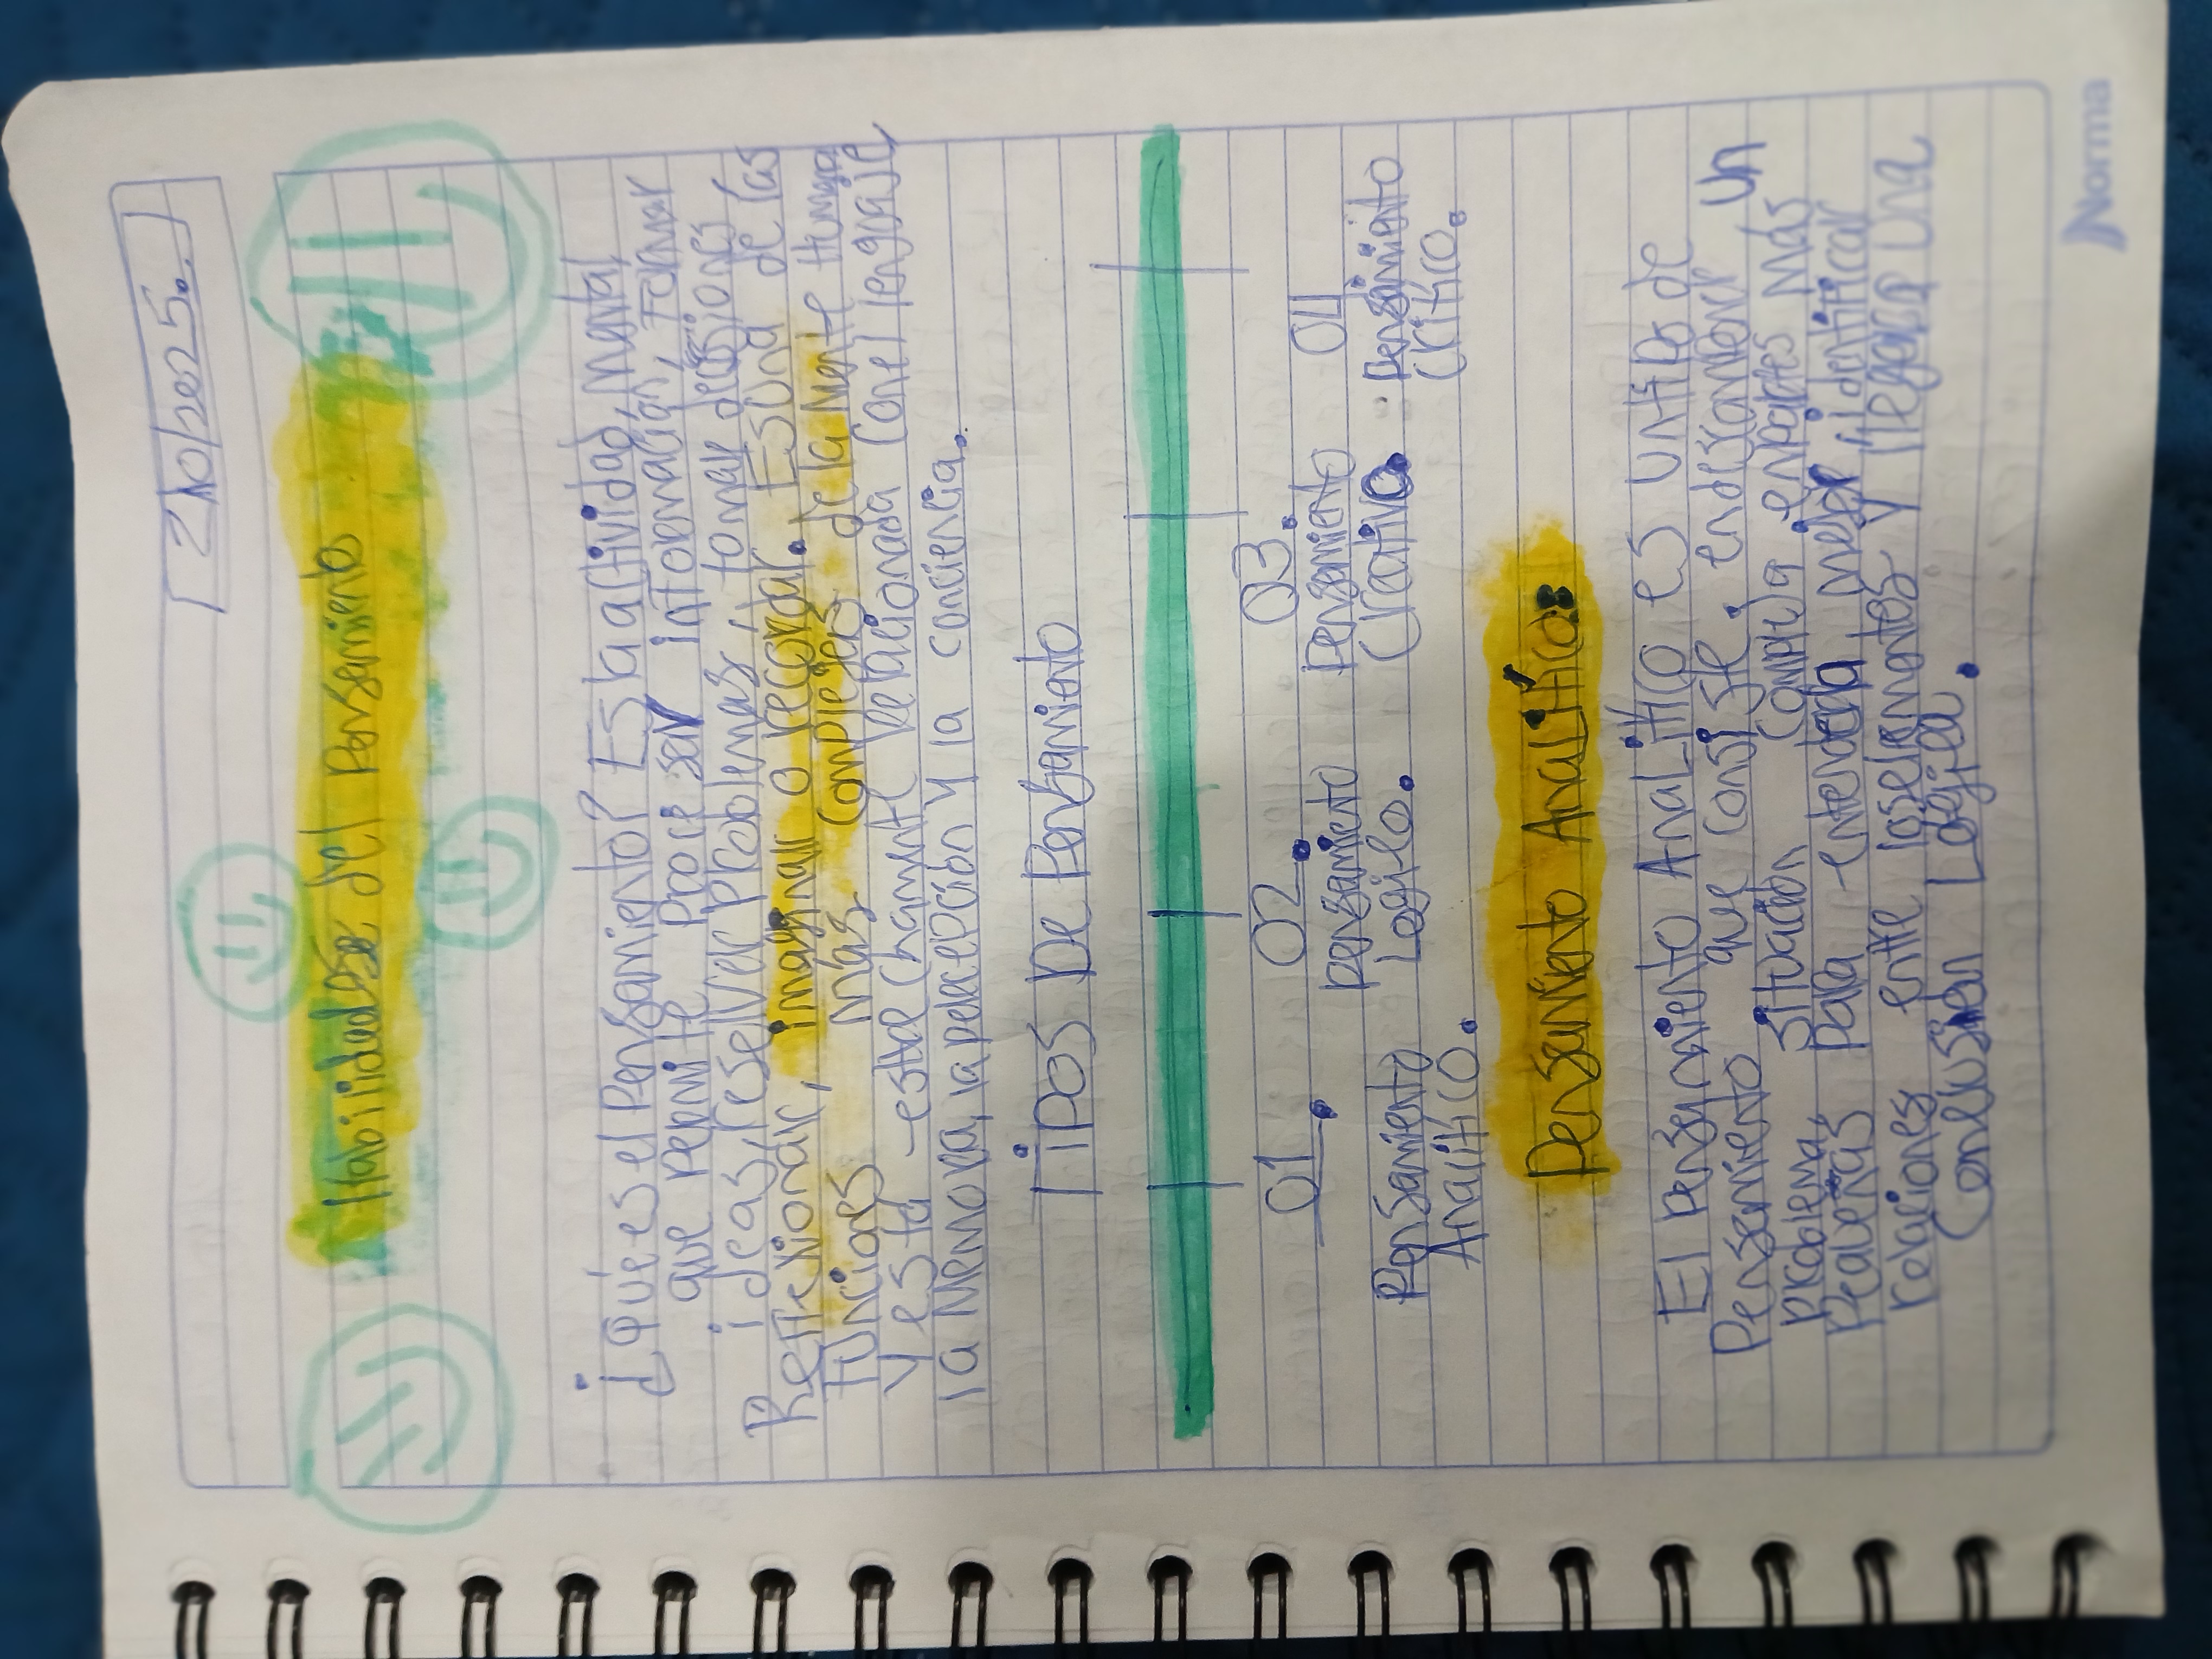 2/10/2025.
Habiidadese del Pensamiento
¿Qué es el Pensamiento? Es la actividad mental
que permite Procesar información, Formar
ideas, reselver Problemas, tomar desisiones
Reflexionar, imaginar o recordar. Es una de las
funciones más complejas de la mente humana
y está estrechamente relacionada con el lengaije
la memoria, la percepción y la conciencia.
Tipos De Pensamiento
01. 02. 03. 04
Pensamiento Analitico.
pensamiento Logilo.
Pensamiento Creativo.
Pensamiento critico.
Pensamiento AnaLítico:
El Pensamiento AnaLitico es un tipo de
Pensamiento que consiste, en descomponer un
problema, situación compleja en partes más
pequeñas para entenderla mejor identificar
relaciones entre los elementos y llegar a una
conclusión Lógica.
Norma